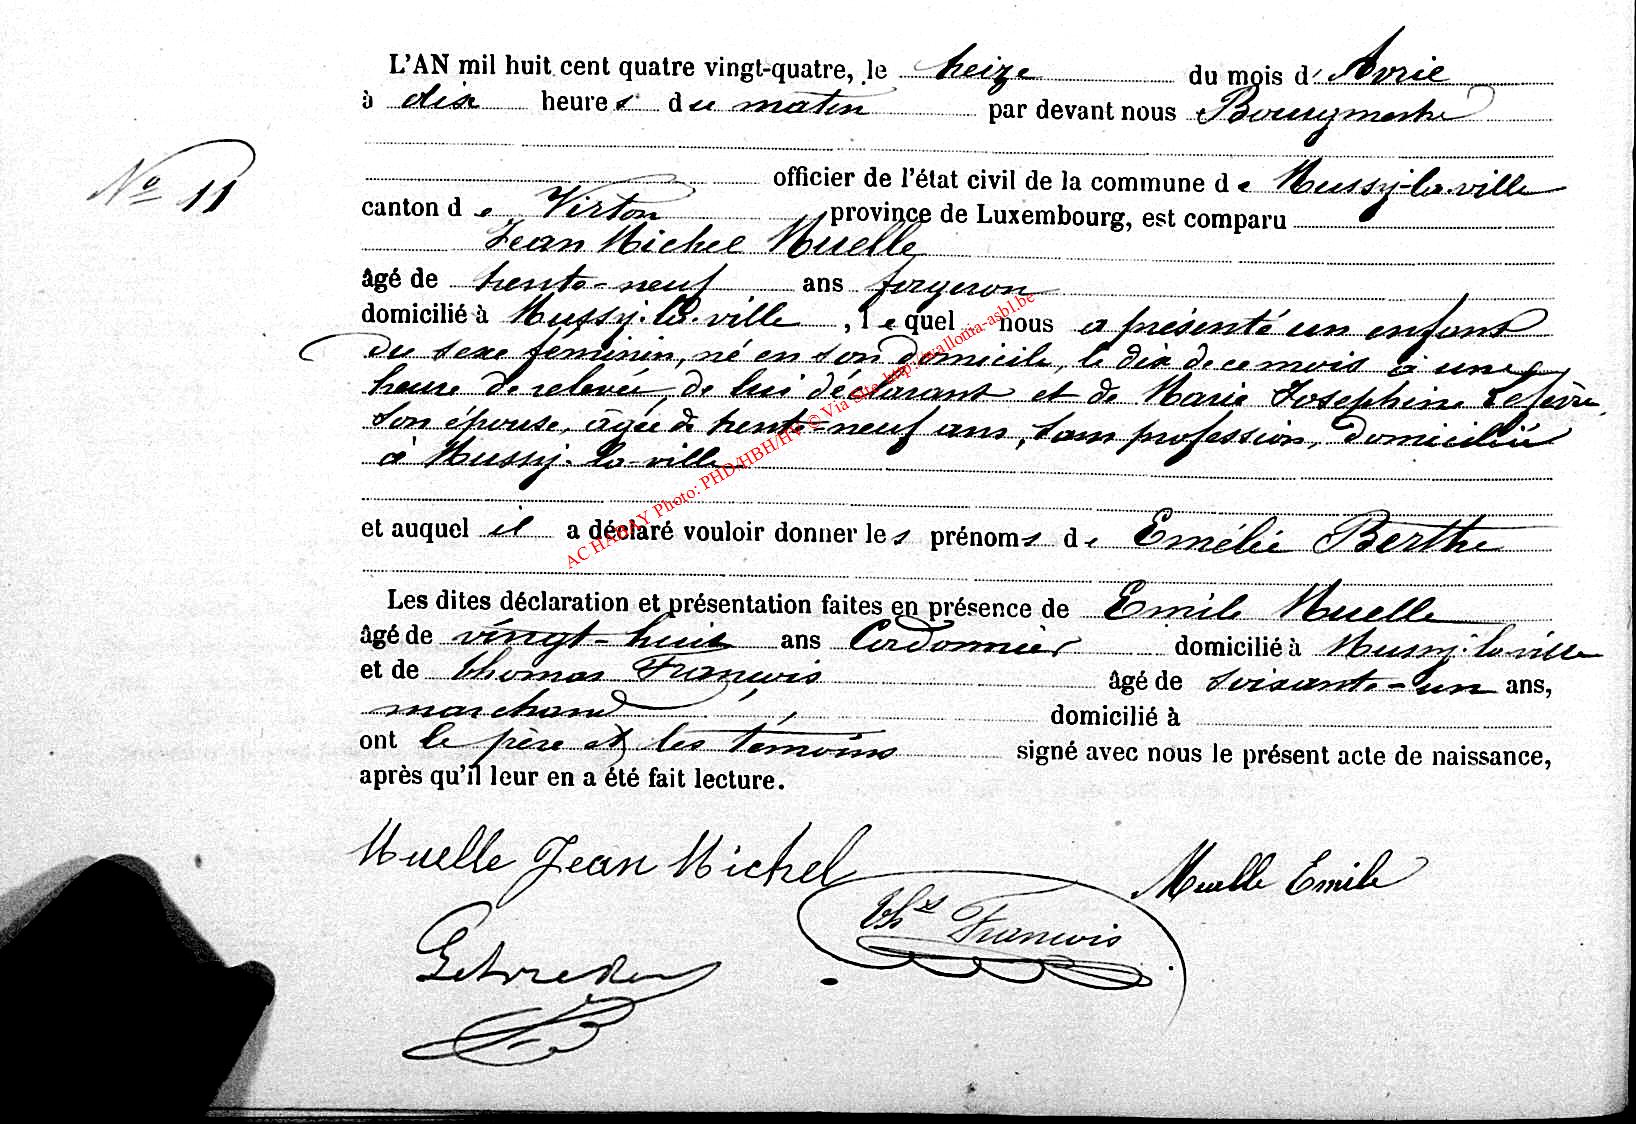 L'AN mil huit cent quatre vingt-quatre, le treize du mois d'Avril
à dix heures du matin par devant nous Bourgmestre
officier de l'état civil de la commune de Mussy-la-ville
No 11
canton de Virton province de Luxembourg, est comparu
Jean Michel Muelle
âgé de trente-neuf ans forgeron
domicilié à Mussy-la-ville, lequel nous a présenté un enfant
du sexe féminin, né en son domicile, le dix de ce mois à une
heure de relevée, de lui déclarant et de Marie Josephine Lefèvre,
son épouse, âgée de trente-neuf ans, sans profession, domiciliée
à Mussy-la-ville
et auquel il a déclaré vouloir donner les prénoms de Emélie Berthe
Les dites déclaration et présentation faites en présence de Emile Muelle
âgé de vingt-huit ans Cordonnier domicilié à Mussy-la-ville
et de Thomas François âgé de soixante-un ans,
marchand domicilié à
ont le père et les témoins signé avec nous le présent acte de naissance,
après qu'il leur en a été fait lecture.
Muelle Jean Michel
Muelle Emile
Ths François
AC HABAY Photo: PHD/HBH/HV © Via Site http://wallonia-asbl.be